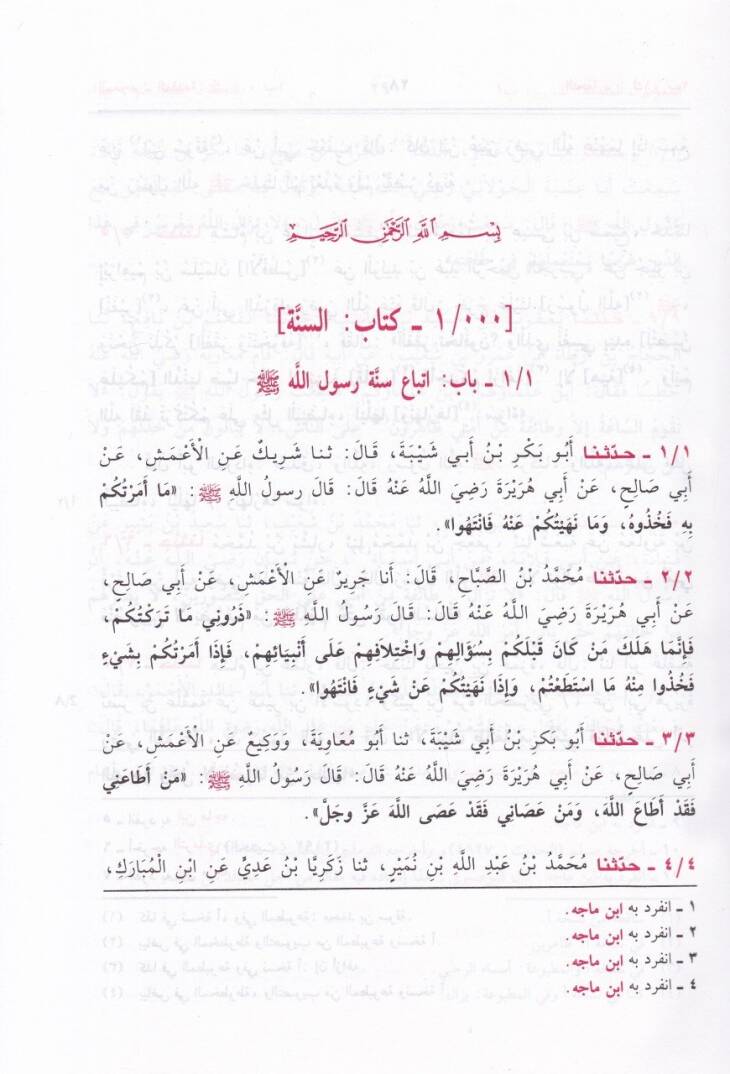 بِسْمِ اللَّهِ الرَّحْمَنِ الرَّحِيمِ
[١/٠٠٠ ـ كتاب: السنَّة]
١/١ ـ باب: اتباع سنَّة رسول اللَّه ﷺ
١/١ ـ حدّثنا أَبُو بَكْرِ بْنُ أَبِي شَيْبَةَ، قَالَ: ثنا شَرِيكٌ عَنِ الْأَعْمَشِ، عَنْ
أَبِي صَالِحٍ، عَنْ أَبِي هُرَيْرَةَ رَضِيَ اللَّهُ عَنْهُ قَالَ: قَالَ رسولُ اللَّهِ ﷺ: «مَا أَمَرْتُكُمْ
بِهِ فَخُذُوهُ، وَمَا نَهَيْتُكُمْ عَنْهُ فَانْتَهُوا».
٢/٢ ـ حدّثنا مُحَمَّدُ بْنُ الصَّبَّاحِ، قَالَ: أَنا جَرِيرٌ عَنِ الْأَعْمَشِ، عَنْ أَبِي صَالِحٍ،
عَنْ أَبِي هُرَيْرَةَ رَضِيَ اللَّهُ عَنْهُ قَالَ: قَالَ رَسُولُ اللَّهِ ﷺ: «ذَرُونِي مَا تَرَكْتُكُمْ،
فَإِنَّمَا هَلَكَ مَنْ كَانَ قَبْلَكُمْ بِسُؤَالِهِمْ وَاخْتِلَافِهِمْ عَلَى أَنْبِيَائِهِمْ، فَإِذَا أَمَرْتُكُمْ بِشَيْءٍ
فَخُذُوا مِنْهُ مَا اسْتَطَعْتُمْ، وَإِذَا نَهَيْتُكُمْ عَنْ شَيْءٍ فَانْتَهُوا».
٣/٣ ـ حدّثنا أَبُو بَكر بْنُ أَبِي شَيْبَةَ، ثنا أَبُو مُعَاوِيَةَ، وَوَكِيعٌ عَنِ الْأَعْمَشِ، عَنْ
أَبِي صَالِحٍ، عَنْ أَبِي هُرَيْرَةَ رَضِيَ اللَّهُ عَنْهُ قَالَ: قَالَ رَسُولُ اللَّهِ ﷺ: «مَنْ أَطَاعَنِي
فَقَدْ أَطَاعَ اللَّهَ، وَمَنْ عَصَانِي فَقَدْ عَصَى اللَّهَ عَزَّ وَجَلَّ».
٤/٤ ـ حدّثنا مُحَمَّدُ بْنُ عَبْدِ اللَّهِ بْنِ نُمَيْرٍ، ثنا زَكَرِيَّا بْنُ عَدِيٍّ عَنِ ابْنِ الْمُبَارَكِ،
١ ـ انفرد به ابن ماجه.
٢ ـ انفرد به ابن ماجه.
٣ ـ انفرد به ابن ماجه.
٤ ـ انفرد به ابن ماجه.